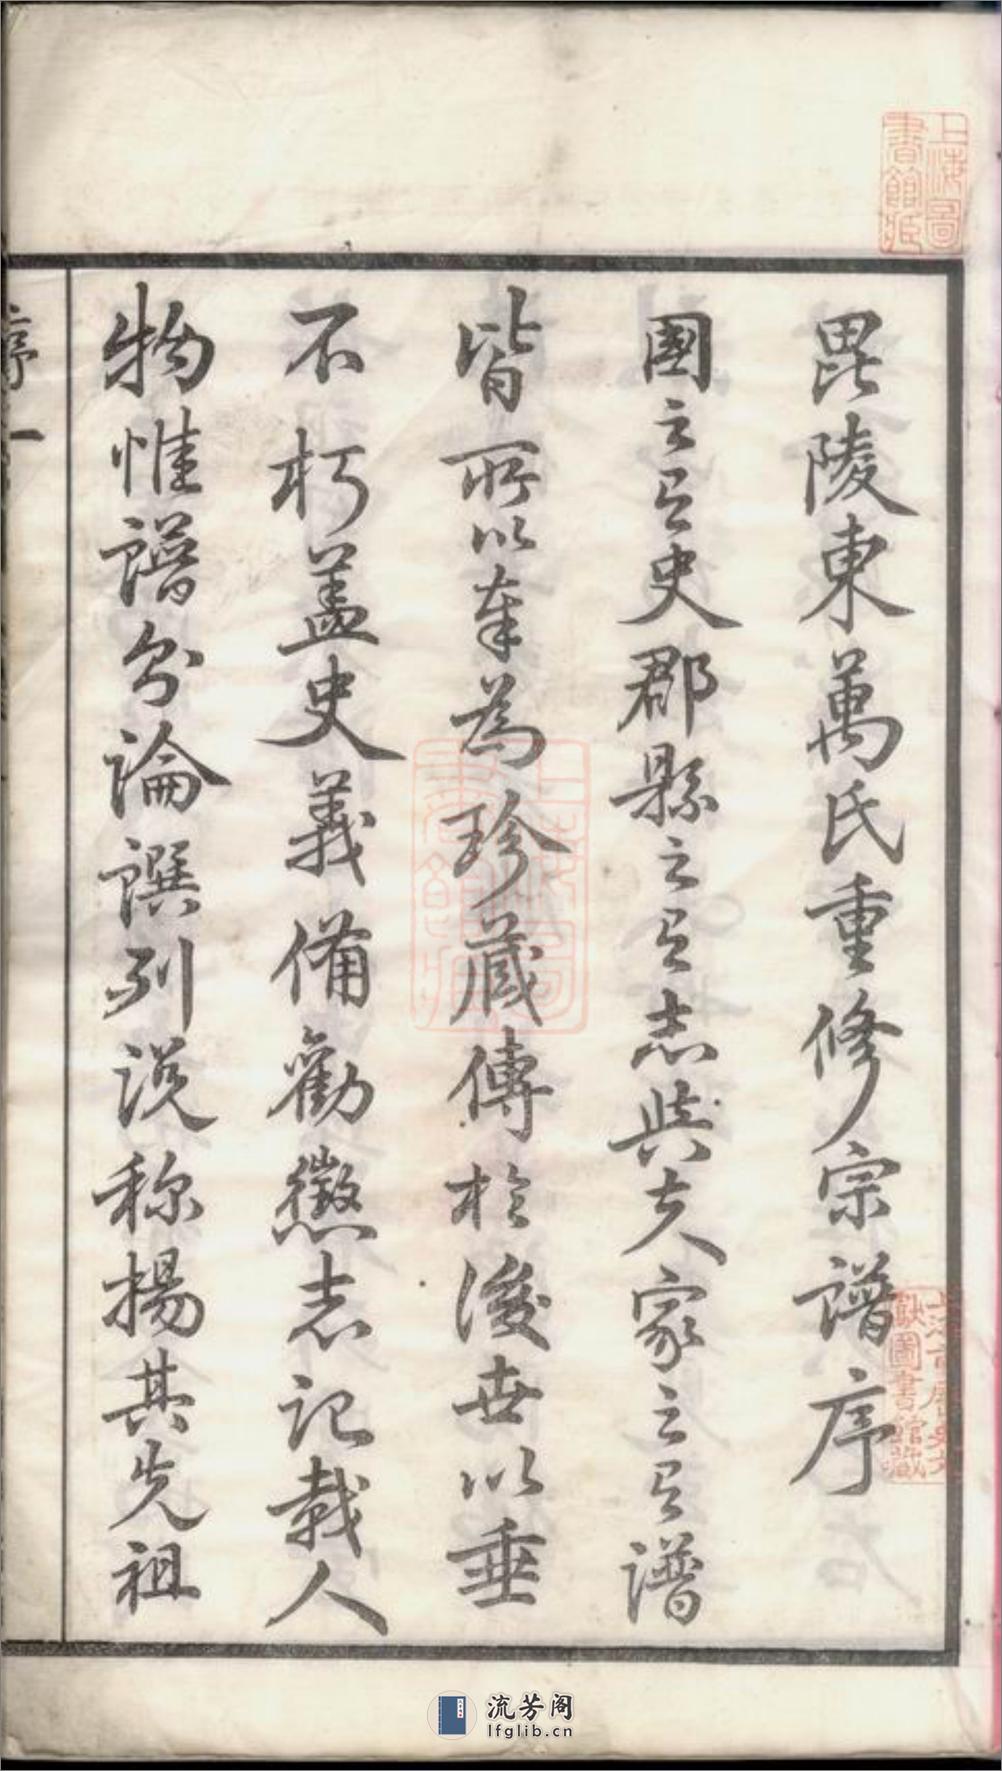 毘陵東萬氏重修宗譜序
國之有史郡縣之有志與夫家之有譜
皆所以奉為珍藏傳於後世以垂
不朽蓋史義備勸懲志記載人
物惟譜分論譔列說称揚其先祖
序一
上海圖書館藏
上海圖書館藏
獻圖書館藏
流芳阁
lfglib.cn